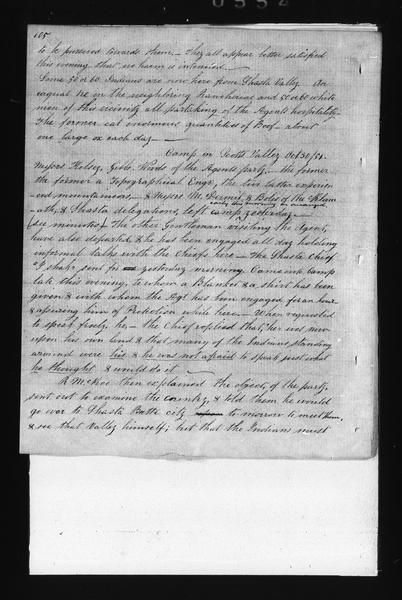 105
to be pursued towards them. — They all appear better satisfied
this evening that no harm is intended. —
Some 50 or 60 Indians are now here from Shasta Valley. An
equal no in the neighboring Rancherias and 50 or 60 white
men of this vicinity all partaking of the Agents hospitality.
The former eat enormous quantities of Beef — about
one large ox each day —
Camp in Scotts Valley Oct 30/51.
Messrs Kelsey, Gibbs, Woods of the Agents party — the former
the former a Topographical Engr, the two latter experien-
ced mountaineers — & Messrs McDermit & Boles of the Klam-
ath, & Shasta delegations, left camp yesterday —
(see minutes) The other Gentleman visiting the Agent,
have also departed, & he has been engaged all day holding
informal talks with the Chiefs here — The Shasta Chief
"I-shak" sent for yesterday morning Came into Camp
late this evening, to whom a Blanket & a shirt has been
given & with whom the Agt has been engaged for an hour
& assuring him of Protection while here — When requested
to speak freely, he — the Chief replied that, he was now
upon his own land & that many of the Indians standing
around were his & he was not afraid to speak just what
he thought & would do it —
R. McKee then explained the object, of the party,
sent out to examine the country, & told them he would
go over to Shasta Butte city to morrow to meet them,
& see that Valley himself; but that the Indians must